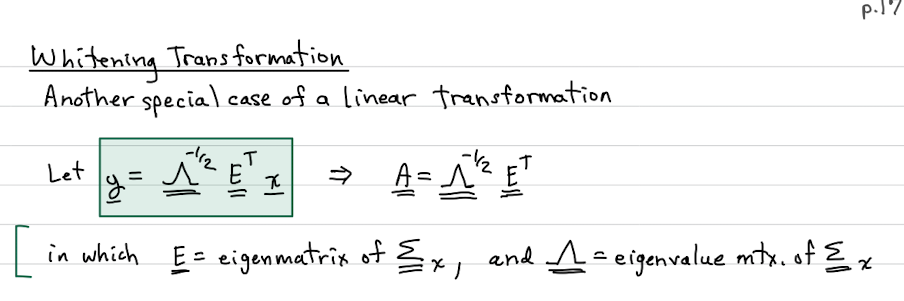 p.17
Whitening Transformation
Another special case of a linear transformation
Let y = Λ^{-1/2} E^T x ⇒ A = Λ^{-1/2} E^T
[ in which E = eigenmatrix of Σ_x, and Λ = eigenvalue mtx. of Σ_x